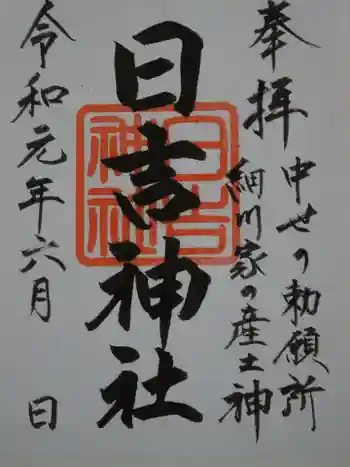 奉拝
中世の勅願所
細川家の産土神
日吉神社
日吉
神社
令和元年六月　日